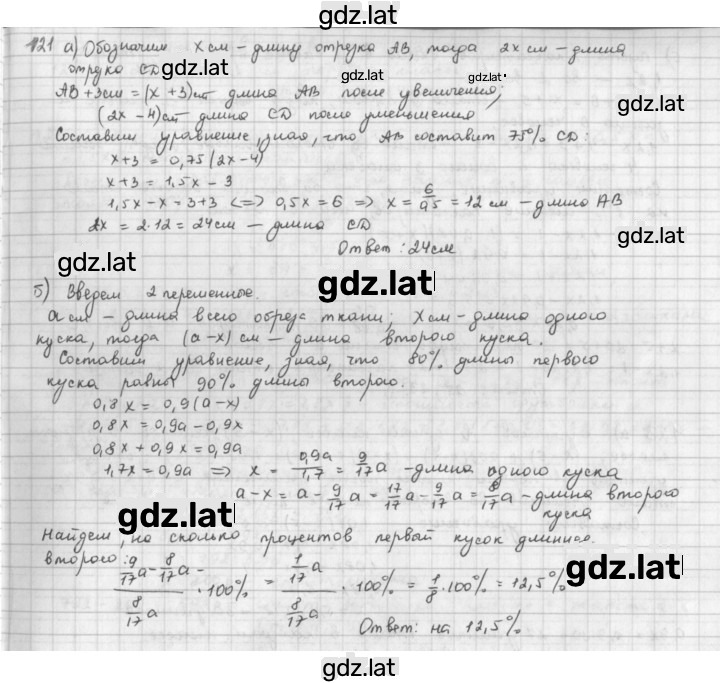 gdz.lat
121 а) Обозначим x см – длину отрезка AB, тогда 2x см – длина
отрезка CD.
gdz.lat
gdz.lat
gdz.lat
AB + 3см = (x + 3)см длина AB после увеличения;
gdz.lat
(2x – 4)см длина CD после уменьшения
Составим уравнение, зная, что AB составит 75% CD:
x+3 = 0,75(2x-4)
x+3 = 1,5x – 3
1,5x – x = 3+3 <=> 0,5x = 6 => x = 6/0,5 = 12 см – длина AB
2x = 2·12 = 24см – длина CD
gdz.lat
Ответ: 24см
gdz.lat
gdz.lat
б) Введем 2 переменные.
a см – длина всего обреза ткани; x см – длина одного
куска, тогда (a-x) см – длина второго куска.
Составим уравнение, зная, что 80% длины первого
куска равны 90% длины второго.
0,8x = 0,9(a-x)
0,8x = 0,9a – 0,9x
0,8x + 0,9x = 0,9a
1,7x = 0,9a => x = 0,9a/1,7 = 9/17 a – длина одного куска
a-x = a - 9/17 a = 17/17 a - 9/17 a = 8/17 a – длина второго
куска
gdz.lat
Найдем, на сколько процентов первый кусок длиннее
второго: (9/17 a - 8/17 a)/(8/17 a) · 100% = (1/17 a)/(8/17 a) · 100% = 1/8 · 100% = 12,5%
gdz.lat
Ответ: на 12,5%
gdz.lat